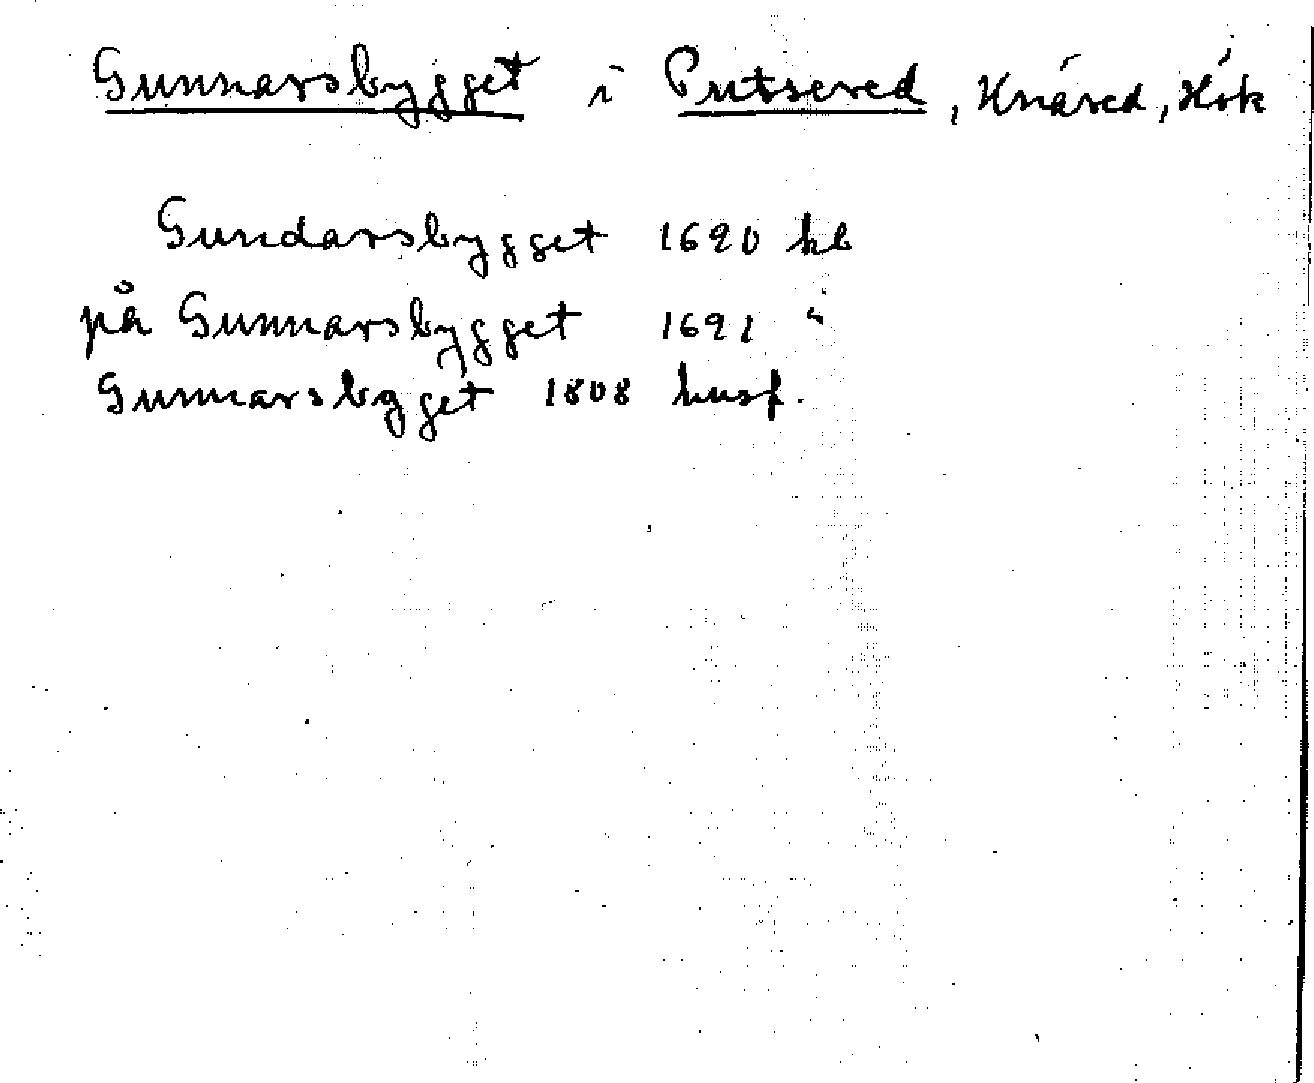 Gunnarsbygget i Putsered, Knäred, Hök
Gundarsbygget 1690 kb
på Gunnarsbygget 1691 "
Gunnarsbygget 1808 husf.